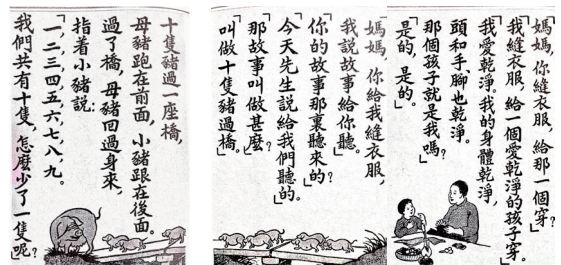 「媽媽，你縫衣服，給那一個穿？」
「我縫衣服，給一個愛乾淨的孩子穿。」
「我愛乾淨。我的身體乾淨，
頭和手腳也乾淨。
那個孩子就是我嗎？」
「是的，是的。」
「媽媽，你給我縫衣服，
我說故事給你聽。」
「你的故事那裏聽來的？」
「今天先生說給我們聽的。」
「那故事叫做甚麼？」
「叫做十隻豬過橋。」
十隻豬過一座橋，
母豬跑在前面，小豬跟在後面。
過了橋，母豬回過身來，
指着小豬說：
「一，二，三，四，五，六，七，八，九。
我們共有十隻，怎麼少了一隻呢？」